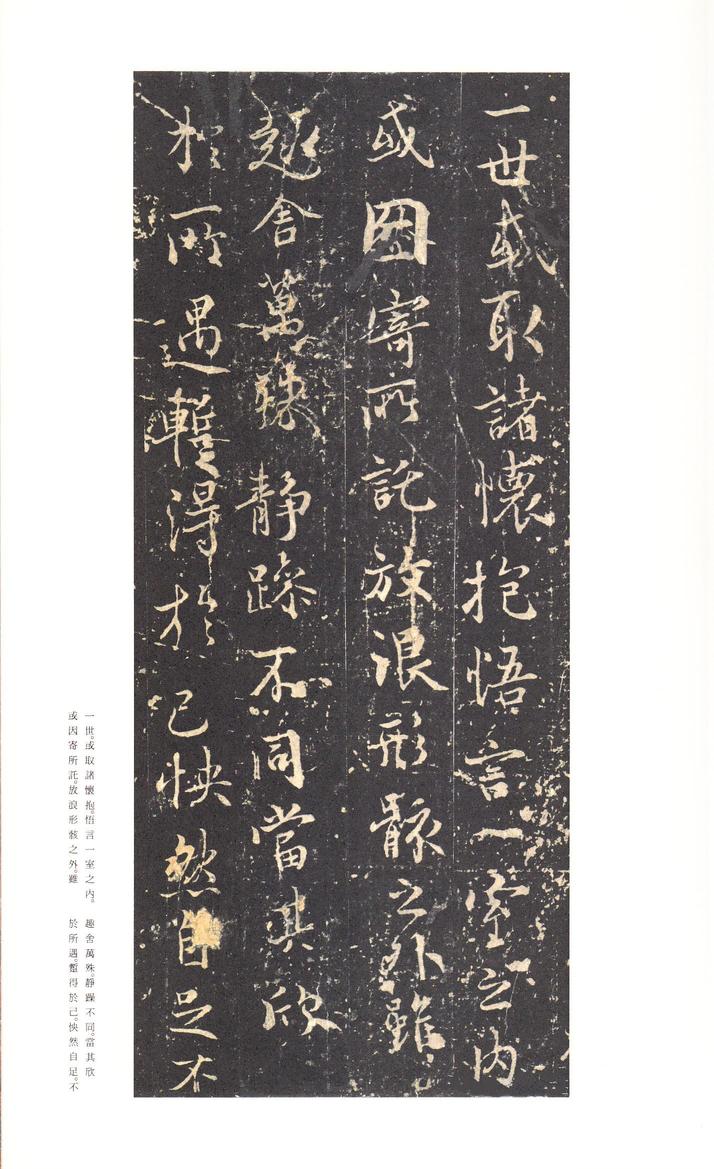 一世或取諸懷抱悟言一室之内
或因寄所託放浪形骸之外雖
趣舍萬殊静躁不同當其欣
於所遇蹔得於己怏然自足不
一世。或取諸懷抱。悟言一室之内。
或因寄所託。放浪形骸之外。雖
趣舍萬殊。静躁不同。當其欣
於所遇。蹔得於己。怏然自足。不